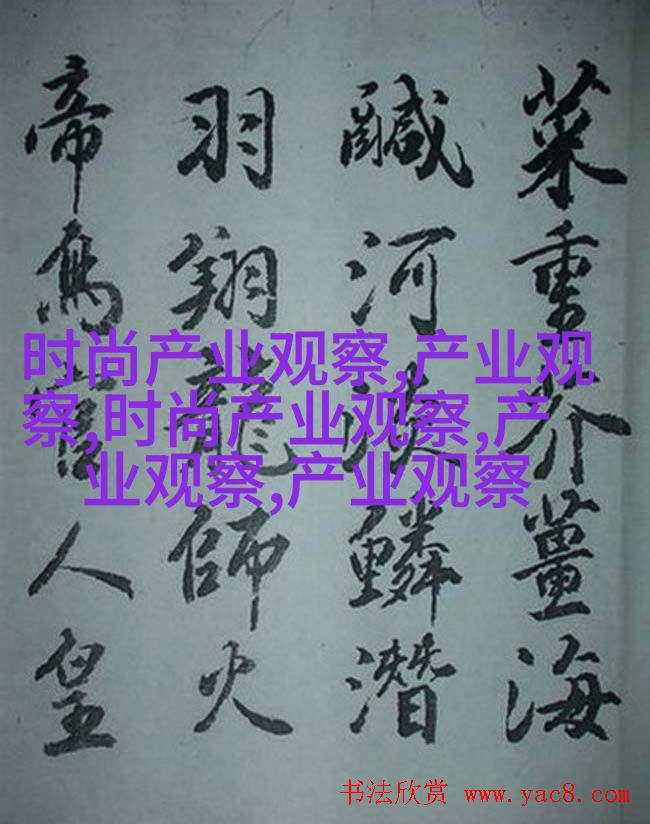 菜重芥薑海
鹹河淡鱗潛
羽翔龍師火
帝鳥官人皇
时尚产业观察,产业观
察,时尚产业观察,产
业观察,产业观察
书法欣赏 www.yac8.com